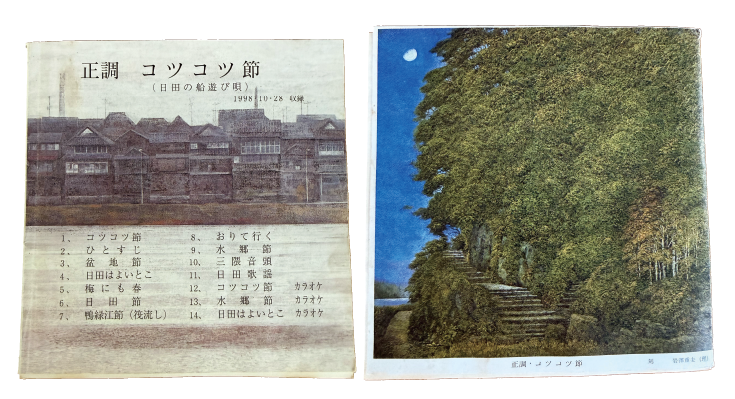 正調 コツコツ節
（日田の船遊び唄）
1998・10・28 収録
1、 コツコツ節
2、 ひとすじ
3、 盆地節
4、 日田はよいとこ
5、 梅にも春
6、 日田節
7、 鴨緑江節（筏流し）
8、 おりて行く
9、 水郷節
10、 三隈音頭
11、 日田歌謡
12、 コツコツ節 カラオケ
13、 水郷節 カラオケ
14、 日田はよいとこ カラオケ
正調・コツコツ節